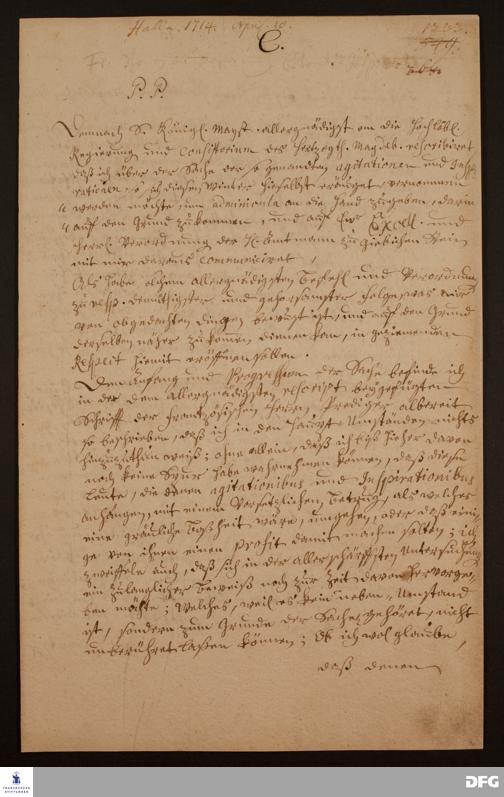 Halle, 1714. April. 10.
C.
P. P.
Demnach S. Königl. Mayst. allergnädigst an die Hochlöbl.
Regierung und Consistorium des Hertzogth. Magdeb. rescribiret
daß ich über der Sache der so genandten agitationen und Inspi-
rationen, so sich diesen Winter hieselbst ereuget, vernommen
werden möchte, um adminicula an die Hand zugeben, darin
auf den Grund zukommen, und auf Eur Excell. und
Herrl. Verordnung der H. Amtmann zu Giebichen Stein
mit mir daraus communiciret,
Als habe solchem allergnädigsten Befehl und Verordnung
zu folge, was mir
von obgedachten dingen bewust ist, und auf den Grund
derselben näher zukommen dienen kan, in geziemenden
Respect hiemit eröffnen sollen.
Den Anfang und Progression der Sache befinde ich
in der dem allergnädigsten rescript beygefügten
Schrifft der Frantzösischen Herren Prediger albereit
so beschrieben, daß ich in den Haupt Umständen nichts
hinzuzuthun weiß; ohne allein, daß ich biß hieher davon
noch keine Spur habe wahrnehmen können, daß diese
Leute, die denen agitationibus und Inspirationibus
anhangen, mit einem vorsetzlichen Betrug, als welches
eine gräuliche Boßheit wäre, umgehen, oder daß eini-
ge von ihnen einen Profit damit machen solten; ich
zweiffele auch, daß sich in der allerschärffsten Untersuchung
ein zulänglicher Beweiß noch zur Zeit davon hervorge-
ben möchte; Welches, weil es kein neben-Umstand
ist, sondern zum Grunde der Sache gehöret, nicht
unberühret laßen können; Ob ich wol glaube,
daß denen
FRANCKESCHE
STIFTUNGEN
DFG